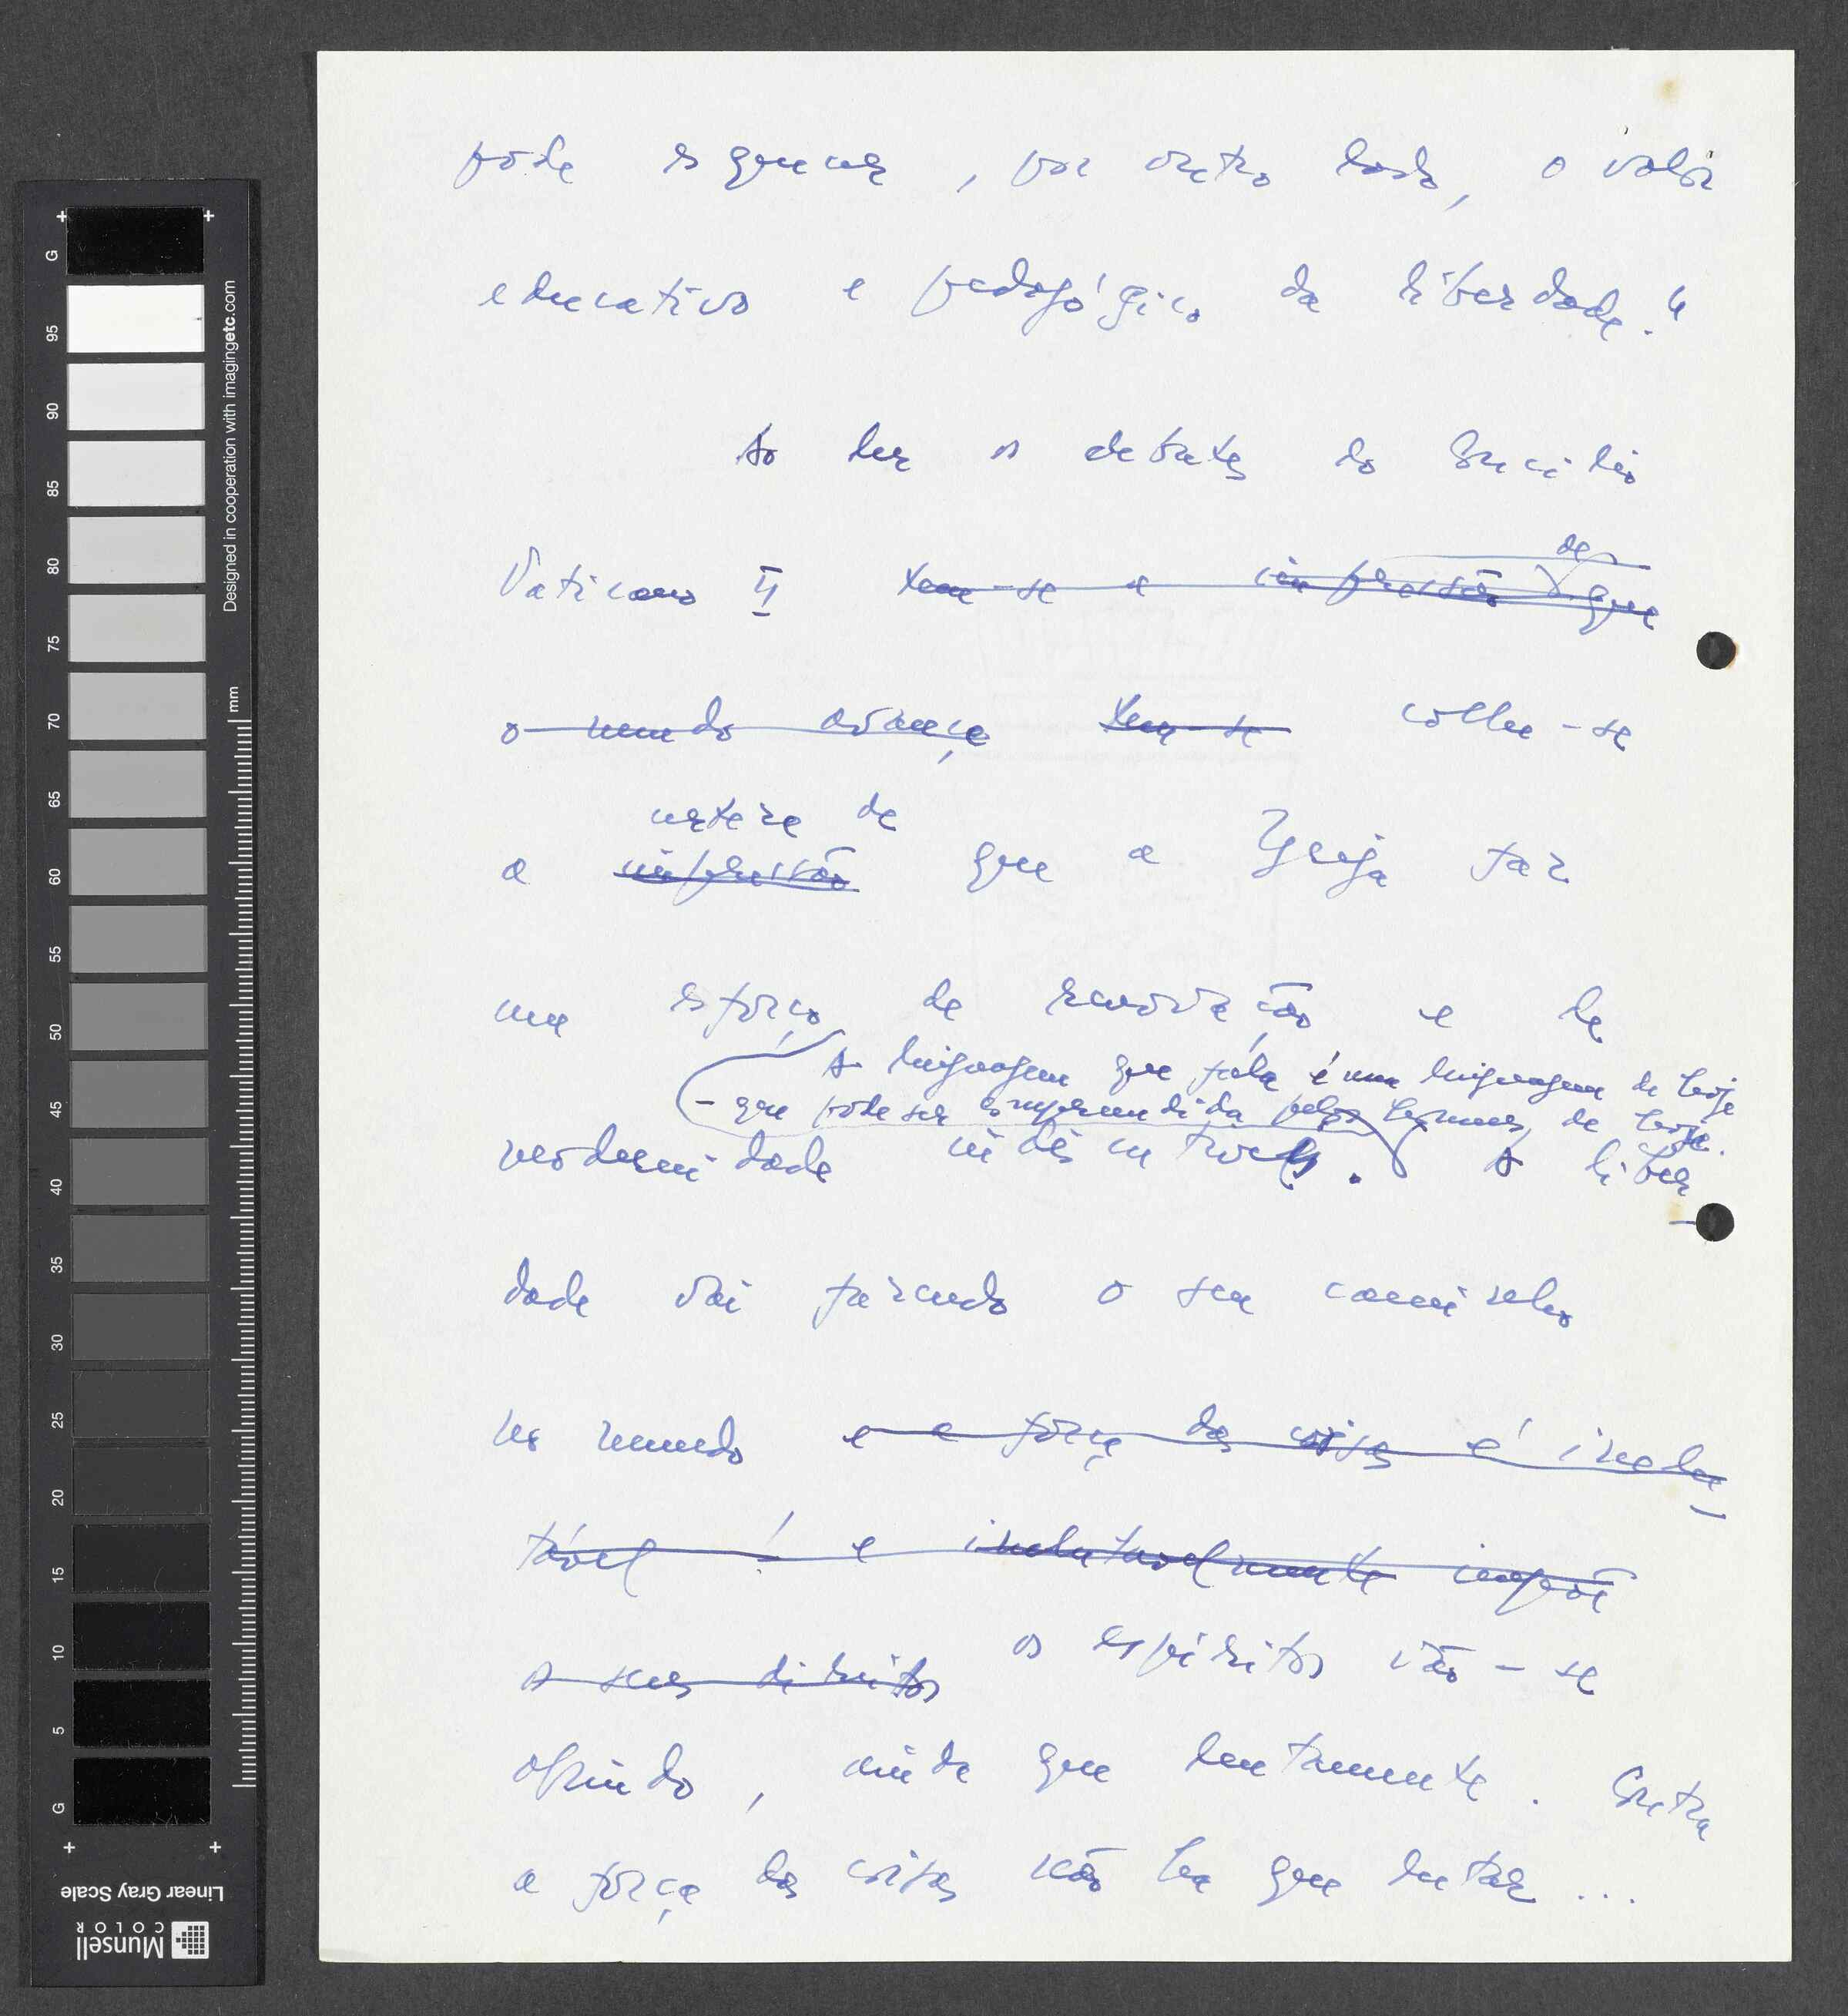 pode esquecer, por outro lado, o valor
educativo e pedagógico da liberdade."
Ao ler os debates do Concílio
de
Vaticano II tem-se a impressão que
o mundo avança tem-se colhe-se
certeza de
a impressão que a Igreja faz
um esforço de renovação e de
A linguagem que fala é uma linguagem de hoje
- que pode ser compreendida pelos homens de hoje.
modernidade indiscutível. A liber-
dade vai fazendo o seu caminho
no mundo e a força das coisas é inelu-
tável! e inelutavelmente impõe
os seus direitos os espíritos vão-se
abrindo, ainda que lentamente. Contra
a força das coisas não há que lutar...
G 95 90 85 80 75 70 65 60 55 50 45 40 35 30 25 20 15 10 5 G
Designed in cooperation with imagingetc.com
mm
Linear Gray Scale
Munsell
COLOR